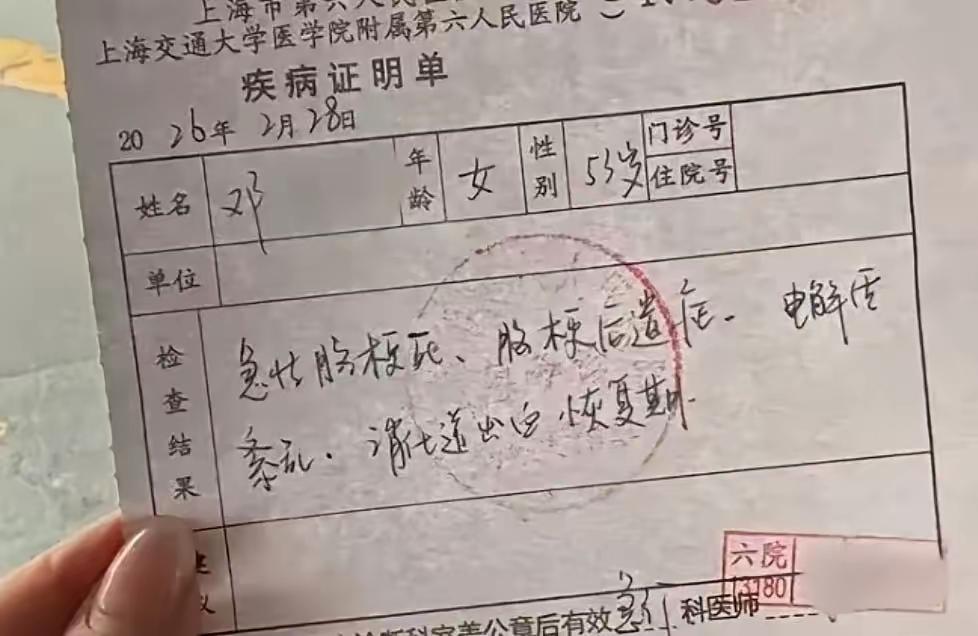 上海市第六人民医
上海交通大学医学院附属第六人民医院
疾病证明单
2026年2月28日
姓名 邓 年龄 女 性别 53岁 门诊号
住院号
单位
检查结果 急性脑梗死、脑梗后遗症、电解质
紊乱、消化道出血恢复期
六院
3180
诊断科室盖公章后有效 急 科医师